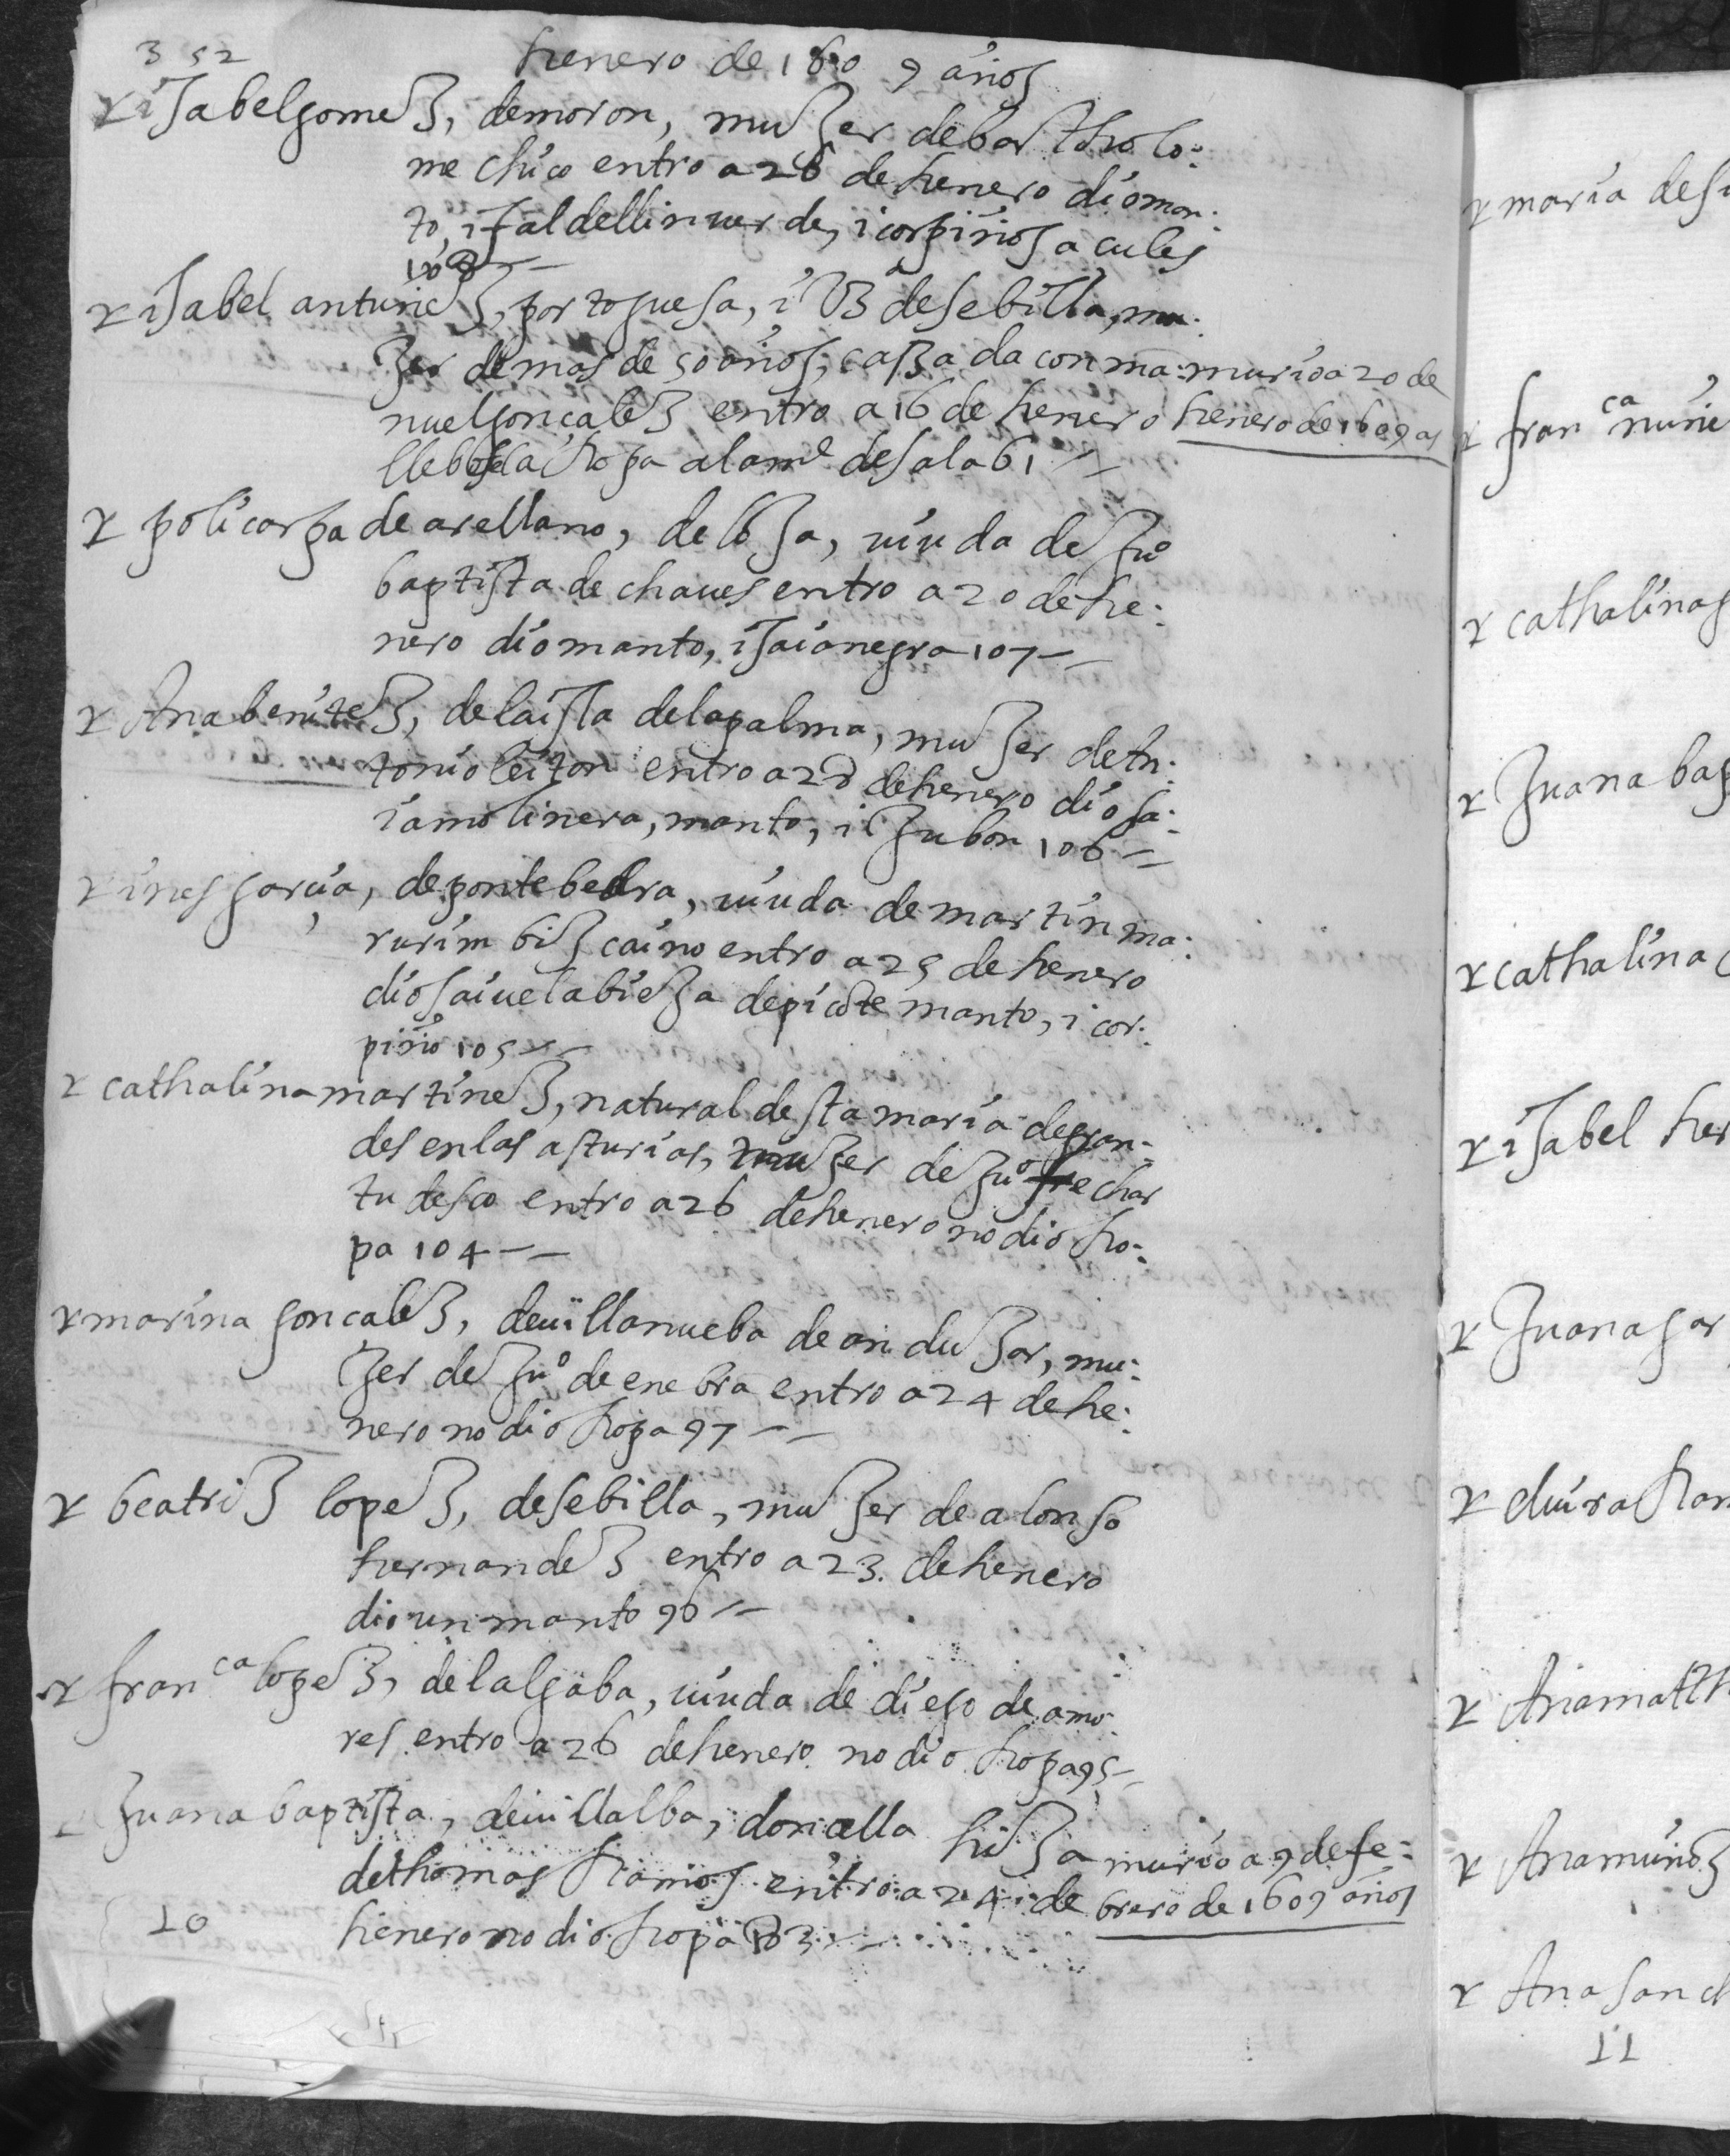 352
henero de 1609 años
r isabel gomez, de moron, muger de bartholo:
me chico entro a 26 de henero dio man:
to, i faldellin uerde, i corpiños açules
108
r isabel antunez, portoguesa, i Vª de sebilla, mu:
ger de mas de 50 años, casada con ma:
nuel gonçalez entro a 16 de henero
llebose la Ropa al ame de sala 61
murio a 20 de
henero de 1609 as
r policarpa de arellano, de , uiuda de Juº
baptista de chaues entro a 20 de he:
nero dio manto, i saia negra 107
r Ana benitez, de la isla de la palma, muger de An:
tonio leiton entro a 28 de henero dio sa:
ia molinera, manto, i jubon 106
r ines garçia, de pontebedra, uiuda de martin ma:
rurim bizcaino entro a 25 de henero
dio saiuela bieja de picote manto, i cor:
piño 105
r cathalina martinez, natural de sta maria de gran:
des en las asturias, muger de Juº frechar
tudesco entro a 26 de henero no dio Ro:
pa 104
r marina gonçalez, de uillanueba de andujar, mu:
ger de Juº de enebra entro a 24 de he:
nero no dio Ropa 97
r beatriz lopez, de sebilla, muger de alonso
hernandez entro a 23. de henero
dio un manto 96
r franca lopez, del algaba, uiuda de diego de amo:
res entro a 26 de henero no dio Ropa 95
r Juana baptista, de uillalba, doncella hija
de thomas Ramos entro a 24 de
henero no dio Ropa 103
murio a 9 de fe:
brero de 1609 años
10
r maria de
r franca nuñe
r cathalina
r Juana bap
r cathalina
r isabel her
r Juana gar
r eluira Ram
r Ana matth
r Ana muñoz
r Ana sanch
11